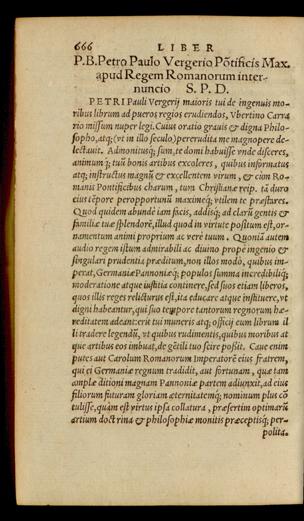 666 LIBER
P.B. Petro Paulo Vergerio Põtificis Max.
apud Regem Romanorum inter-
nuncio S. P. D.
PETRI Pauli Vergerij maioris tui de ingenuis mo-
ribus librum ad pueros regios erudiendos, Vbertino Carra
rio missum nuper legi. Cuius oratio grauis & digna Philo-
sopho, atq; (vt in illo seculo) pererudita me magnopere de-
lectauit. Admonitusq; sum, te domi habuisse vnde disceres,
animum ij tuũ bonis artibus excoleres, quibus informatus
atq; instructus magnũ & excellentem virum, & cùm Ro-
manis Pontificibus charum, tum Christianæ reip. tã duro
eius tẽpore peropportunũ maximeq; vtilem te præstares.
Quod quidem abundè iam facis, addisq; ad clarũ gentis &
familiæ tuæ splendorẽ, illud quod in virtute positum est, or-
namentum animi proprium ac verè tuum. Quoniã autem
audio regem istum admirabili ac diuino propè ingenio &
singulari prudentia præditum, non illos modò, quibus im-
perat, Germaniæ Pannoniæq; populos summa incredibiliq;
moderatione atque iustitia continere, sed suos etiam liberos,
quos illis reges relicturus est, ita educare atque instituere, vt
digni habeantur, qui suo tempore tantorum regnorum hæ-
reditatem adeant: erit tui muneris atq; officij eum librum il
li tradere legendũ, vt quibus rudimentis, quibus moribus at
que artibus eos imbuat, de gẽtili tuo scire possit. Caue enim
putes aut Carolum Romanorum Imperatorẽ eius fratrem,
qui ei Germaniæ regnum tradidit, aut fortunam, quæ tam
amplæ ditioni magnam Pannoniæ partem adiunxit, ad eius
filiorum futuram gloriam æternitatemq; nominum plus cõ
tulisse, quàm est virtus ipsa collatura, præsertim optimarũ
artium doctrina & philosophiæ monitis præceptisq; per-
polita.